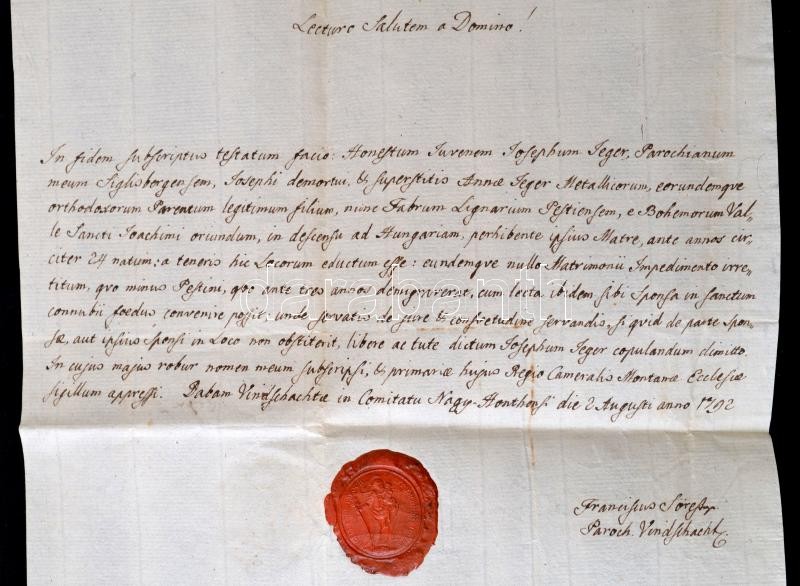 Lecturo Salutem a Domino!
In fidem subscriptus testatum facio: Honestum Iuvenem Iosephum Ieger, Parochianum
meum Siglisbergensem, Iosephi demortui, & superstitis Annæ Ieger Metallicorum, eorundemque
orthodoxorum Parentum legitimum filium, nunc Fabrum Lignarium Pestiensem, e Bohemorum Val„
le Sancti Ioachimi oriundum, in descensu ad Hungariam, perhibente ipsius Matre, ante annos cir„
citer 24 natum: a teneris hic Locorum eductum esse: eundemque nullo Matrimonii Impedimento irre„
titum, quo minus Pestini, quo ante tres annos demigraverat, cum lecta ibidem sibi Sponsa in sanctum
connubii foedus convenire possit: unde servatis de jure & consvetudine servandis, si quid de parte Spon„
sæ, aut ipsius Sponsi in Loco non obstiterit, libere ac tute dictum Iosephum Ieger copulandum dimitto.
In cujus majus robur nomen meum subscripsi, & primariæ hujus Regio Cameralis Montanæ Ecclesiæ
sigillum appressi. Dabam Vindschachtæ in Comitatu Nagy-Honthensi die 2 Augusti anno 1792
Franciscus
Paroch. Vindschacht.
darabanth